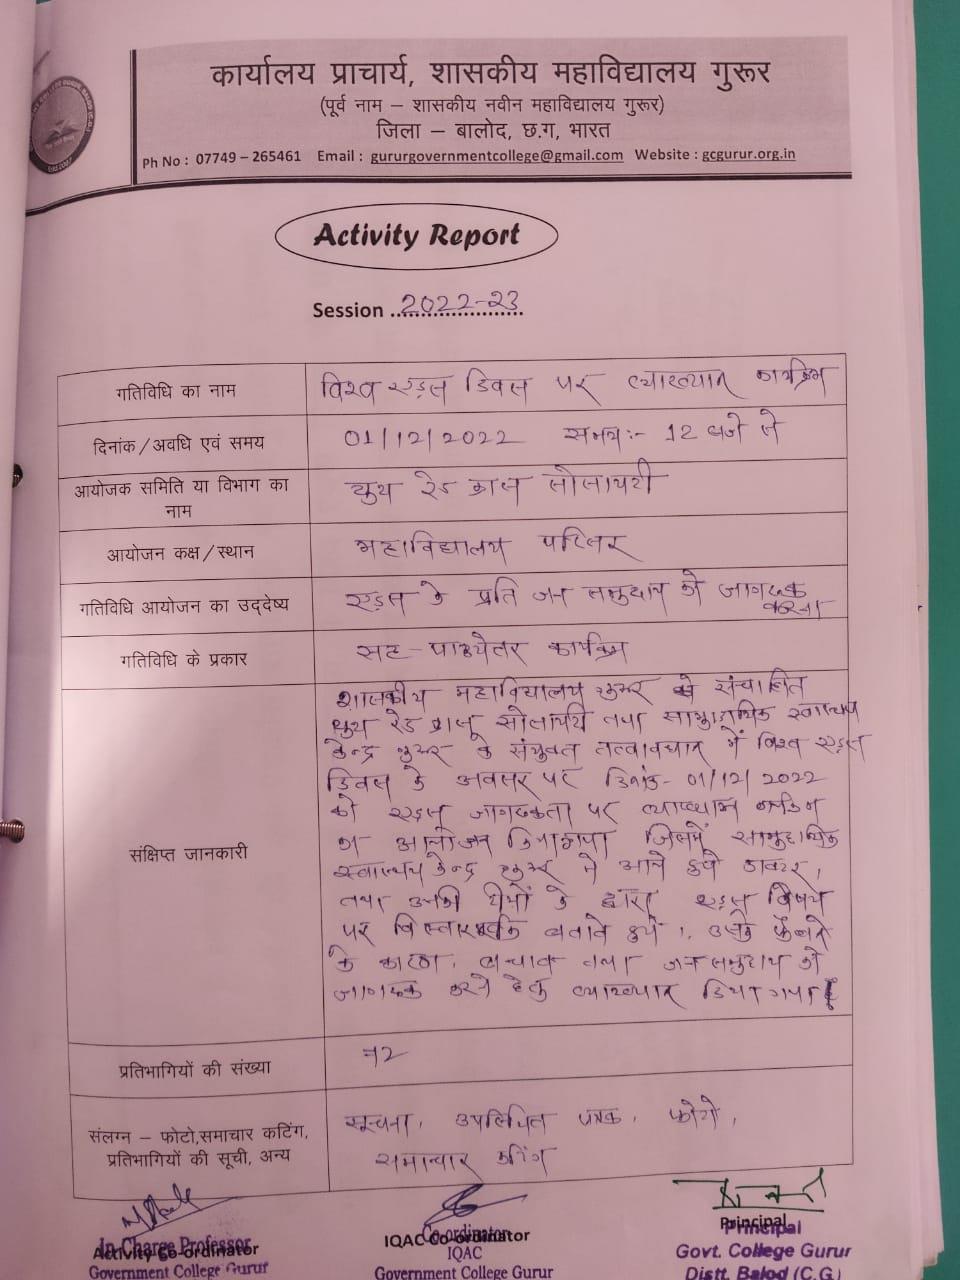 कार्यालय प्राचार्य, शासकीय महाविद्यालय गुरूर
(पूर्व नाम – शासकीय नवीन महाविद्यालय गुरूर)
जिला – बालोद, छ.ग, भारत
Ph No : 07749 – 265461 Email : gururgovernmentcollege@gmail.com Website : gcgurur.org.in
Activity Report
Session ..2022-23
गतिविधि का नाम विश्व एड्स दिवस पर व्याख्यान कार्यक्रम
दिनांक/अवधि एवं समय 01/12/2022 समय:- 12 बजे से
आयोजक समिति या विभाग का
नाम यूथ रेड क्रास सोसायटी
आयोजन कक्ष/स्थान महाविद्यालय परिसर
गतिविधि आयोजन का उद्देष्य एड्स के प्रति जन समुदाय को जागरूक
करना
गतिविधि के प्रकार सह-पाठ्येतर कार्यक्रम
संक्षिप्त जानकारी
शासकीय महाविद्यालय गुरूर में संचालित
यूथ रेड क्रास सोसायटी तथा सामुदायिक स्वास्थ्य
केन्द्र गुरूर के संयुक्त तत्वावधान में विश्व एड्स
दिवस के अवसर पर दिनांक- 01/12/2022
को एड्स जागरूकता पर व्याख्यान
का आयोजन किया गया जिसमें सामुदायिक
स्वास्थ्य केन्द्र गुरूर से आये हुये डाक्टर,
तथा उनकी टीमों के द्वारा एड्स विषय
पर विस्तारपूर्वक बताते हुये, उसके फैलने
के कारण, बचाव तथा जनसमुदाय को
जागरूक करने हेतु व्याख्यान दिया गया।
प्रतिभागियों की संख्या 72
संलग्न – फोटो,समाचार कटिंग,
प्रतिभागियों की सूची, अन्य
सूचना, उपस्थिति पत्रक, फोटो,
समाचार कटिंग
In-Charge Professor
Activity Co-ordinator
Government College Gurur
Co-ordinator
IQAC Co-ordinator
IQAC
Government College Gurur
Principal
Principal
Govt. College Gurur
Distt. Balod (C.G.)